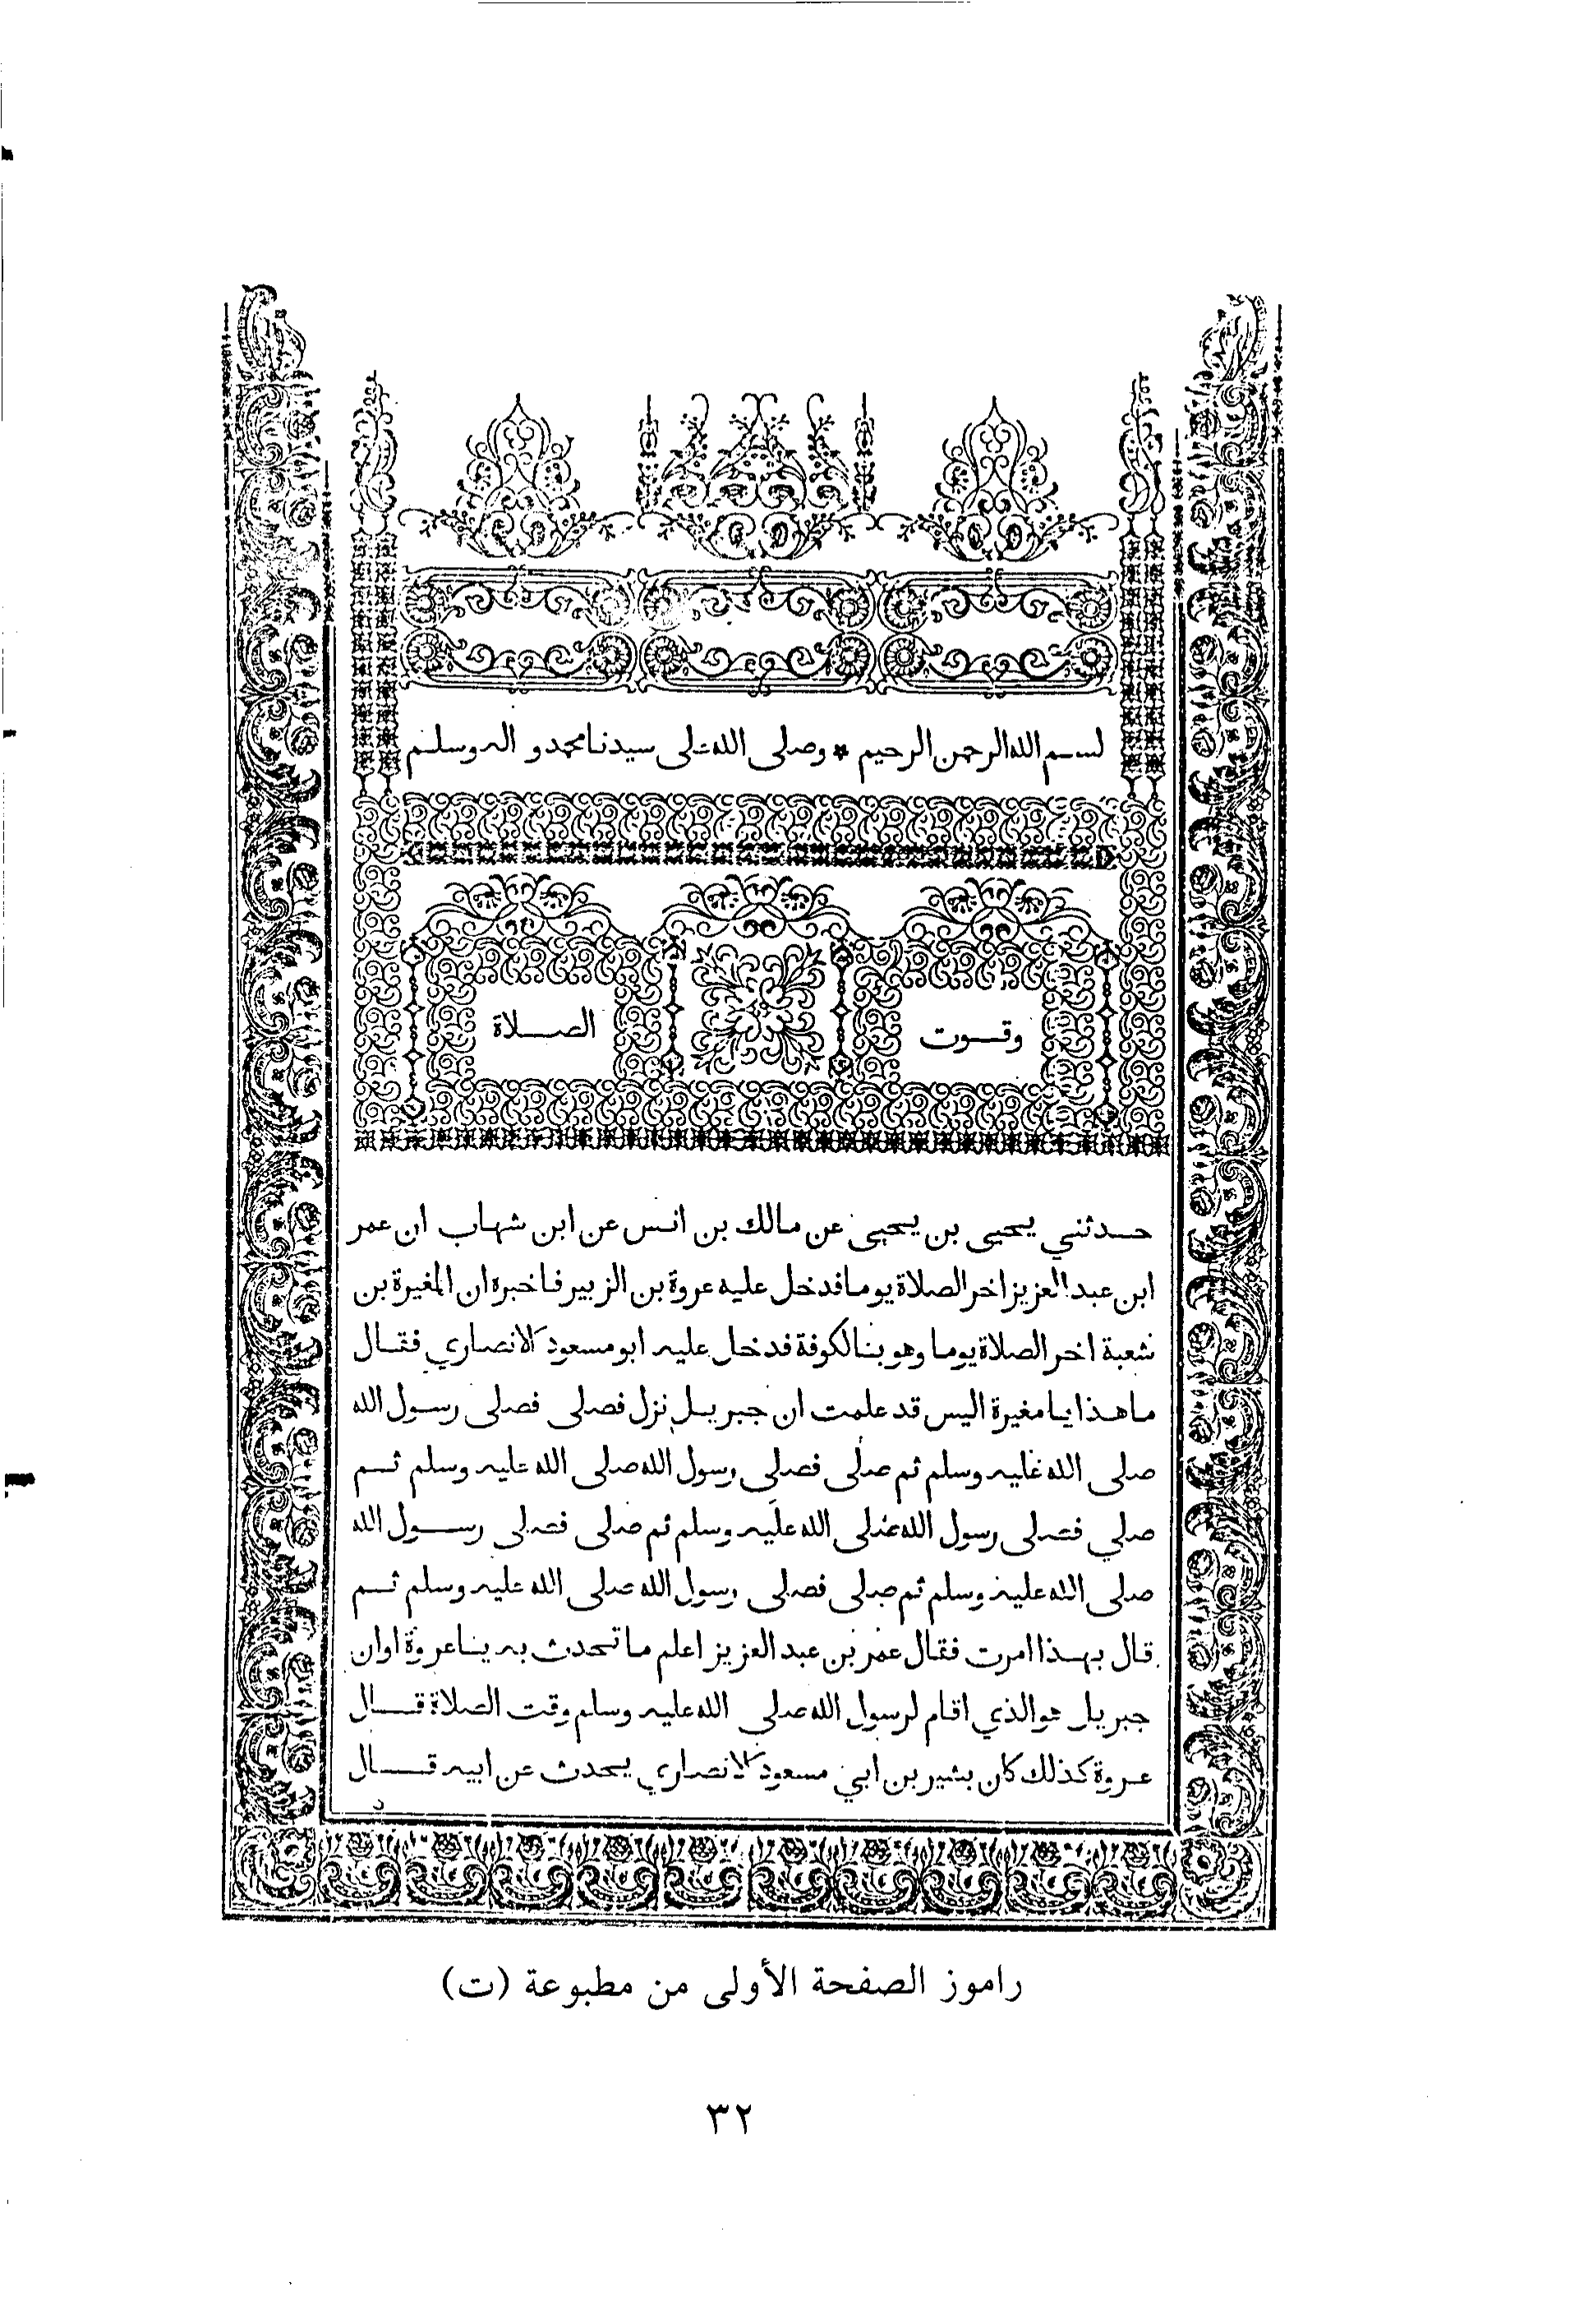 بسم الله الرحمن الرحيم * وصلى الله على سيدنا محمد و اله وسلم
وقوت الصلاة
حدثني يحيى بن يحيى عن مالك بن انس عن ابن شهاب ان عمر
ابن عبد العزيز اخر الصلاة يوما فدخل عليه عروة بن الزبير فاخبره ان المغيرة بن
شعبة اخر الصلاة يوما وهو بالكوفة فدخل عليه ابو مسعود الانصاري فقال
ما هذا يا مغيرة اليس قد علمت ان جبريل نزل فصلى فصلى رسول الله
صلى الله عليه وسلم ثم صلى فصلى رسول الله صلى الله عليه وسلم ثم
صلي فصلى رسول الله صلى الله عليه وسلم ثم صلى فصلى رسول الله
صلى الله عليه وسلم ثم صلى فصلى رسول الله صلى الله عليه وسلم ثم
قال بهذا امرت فقال عمر بن عبد العزيز اعلم ما تحدث به يا عروة اوان
جبريل هو الذي اقام لرسول الله صلى الله عليه وسلم وقت الصلاة قال
عروة كذلك كان بشير بن ابي مسعود الانصاري يحدث عن ابيه قال
راموز الصفحة الأولى من مطبوعة (ت)
٣٢